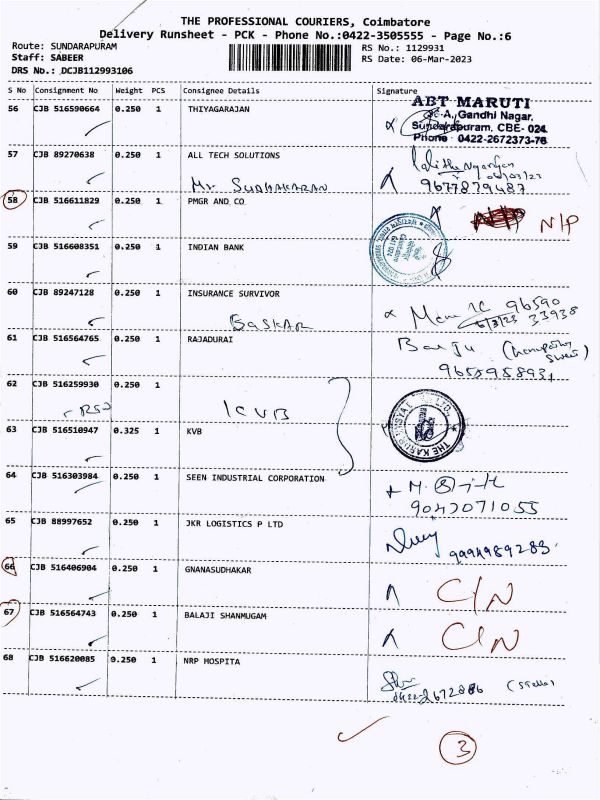 THE PROFESSIONAL COURIERS, Coimbatore
Delivery Runsheet - PCK - Phone No.:0422-3505555 - Page No.:6
Route: SUNDARAPURAM RS No.: 1129931
Staff: SABEER RS Date: 06-Mar-2023
DRS No.: DCJB112993106
S No Consignment No Weight PCS Consignee Details Signature
56 CJB 516590664 0.250 1 THIYAGARAJAN
ABT MARUTI
Gandhi Nagar,
Sundarapuram, CBE- 024.
Phone : 0422-2672373-76
57 CJB 89270638 0.250 1 ALL TECH SOLUTIONS
Mr SUDHAKARAN 9677879487
58 CJB 516611829 0.250 1 PMGR AND CO
N/P
59 CJB 516608351 0.250 1 INDIAN BANK
60 CJB 89247128 0.250 1 INSURANCE SURVIVOR
BASKAR 6/3/23 96590 33938
61 CJB 516564765 0.250 1 RAJADURAI
9655958931
62 CJB 516259930 0.250 1
KVB
63 CJB 516510947 0.325 1 KVB
64 CJB 516303984 0.250 1 SEEN INDUSTRIAL CORPORATION
9042071055
65 CJB 88997652 0.250 1 JKR LOGISTICS P LTD
9994989283
66 CJB 516406904 0.250 1 GNANASUDHAKAR
C/N
67 CJB 516564743 0.250 1 BALAJI SHANMUGAM
C/N
68 CJB 516620085 0.250 1 NRP HOSPITA
0422-2672886
3